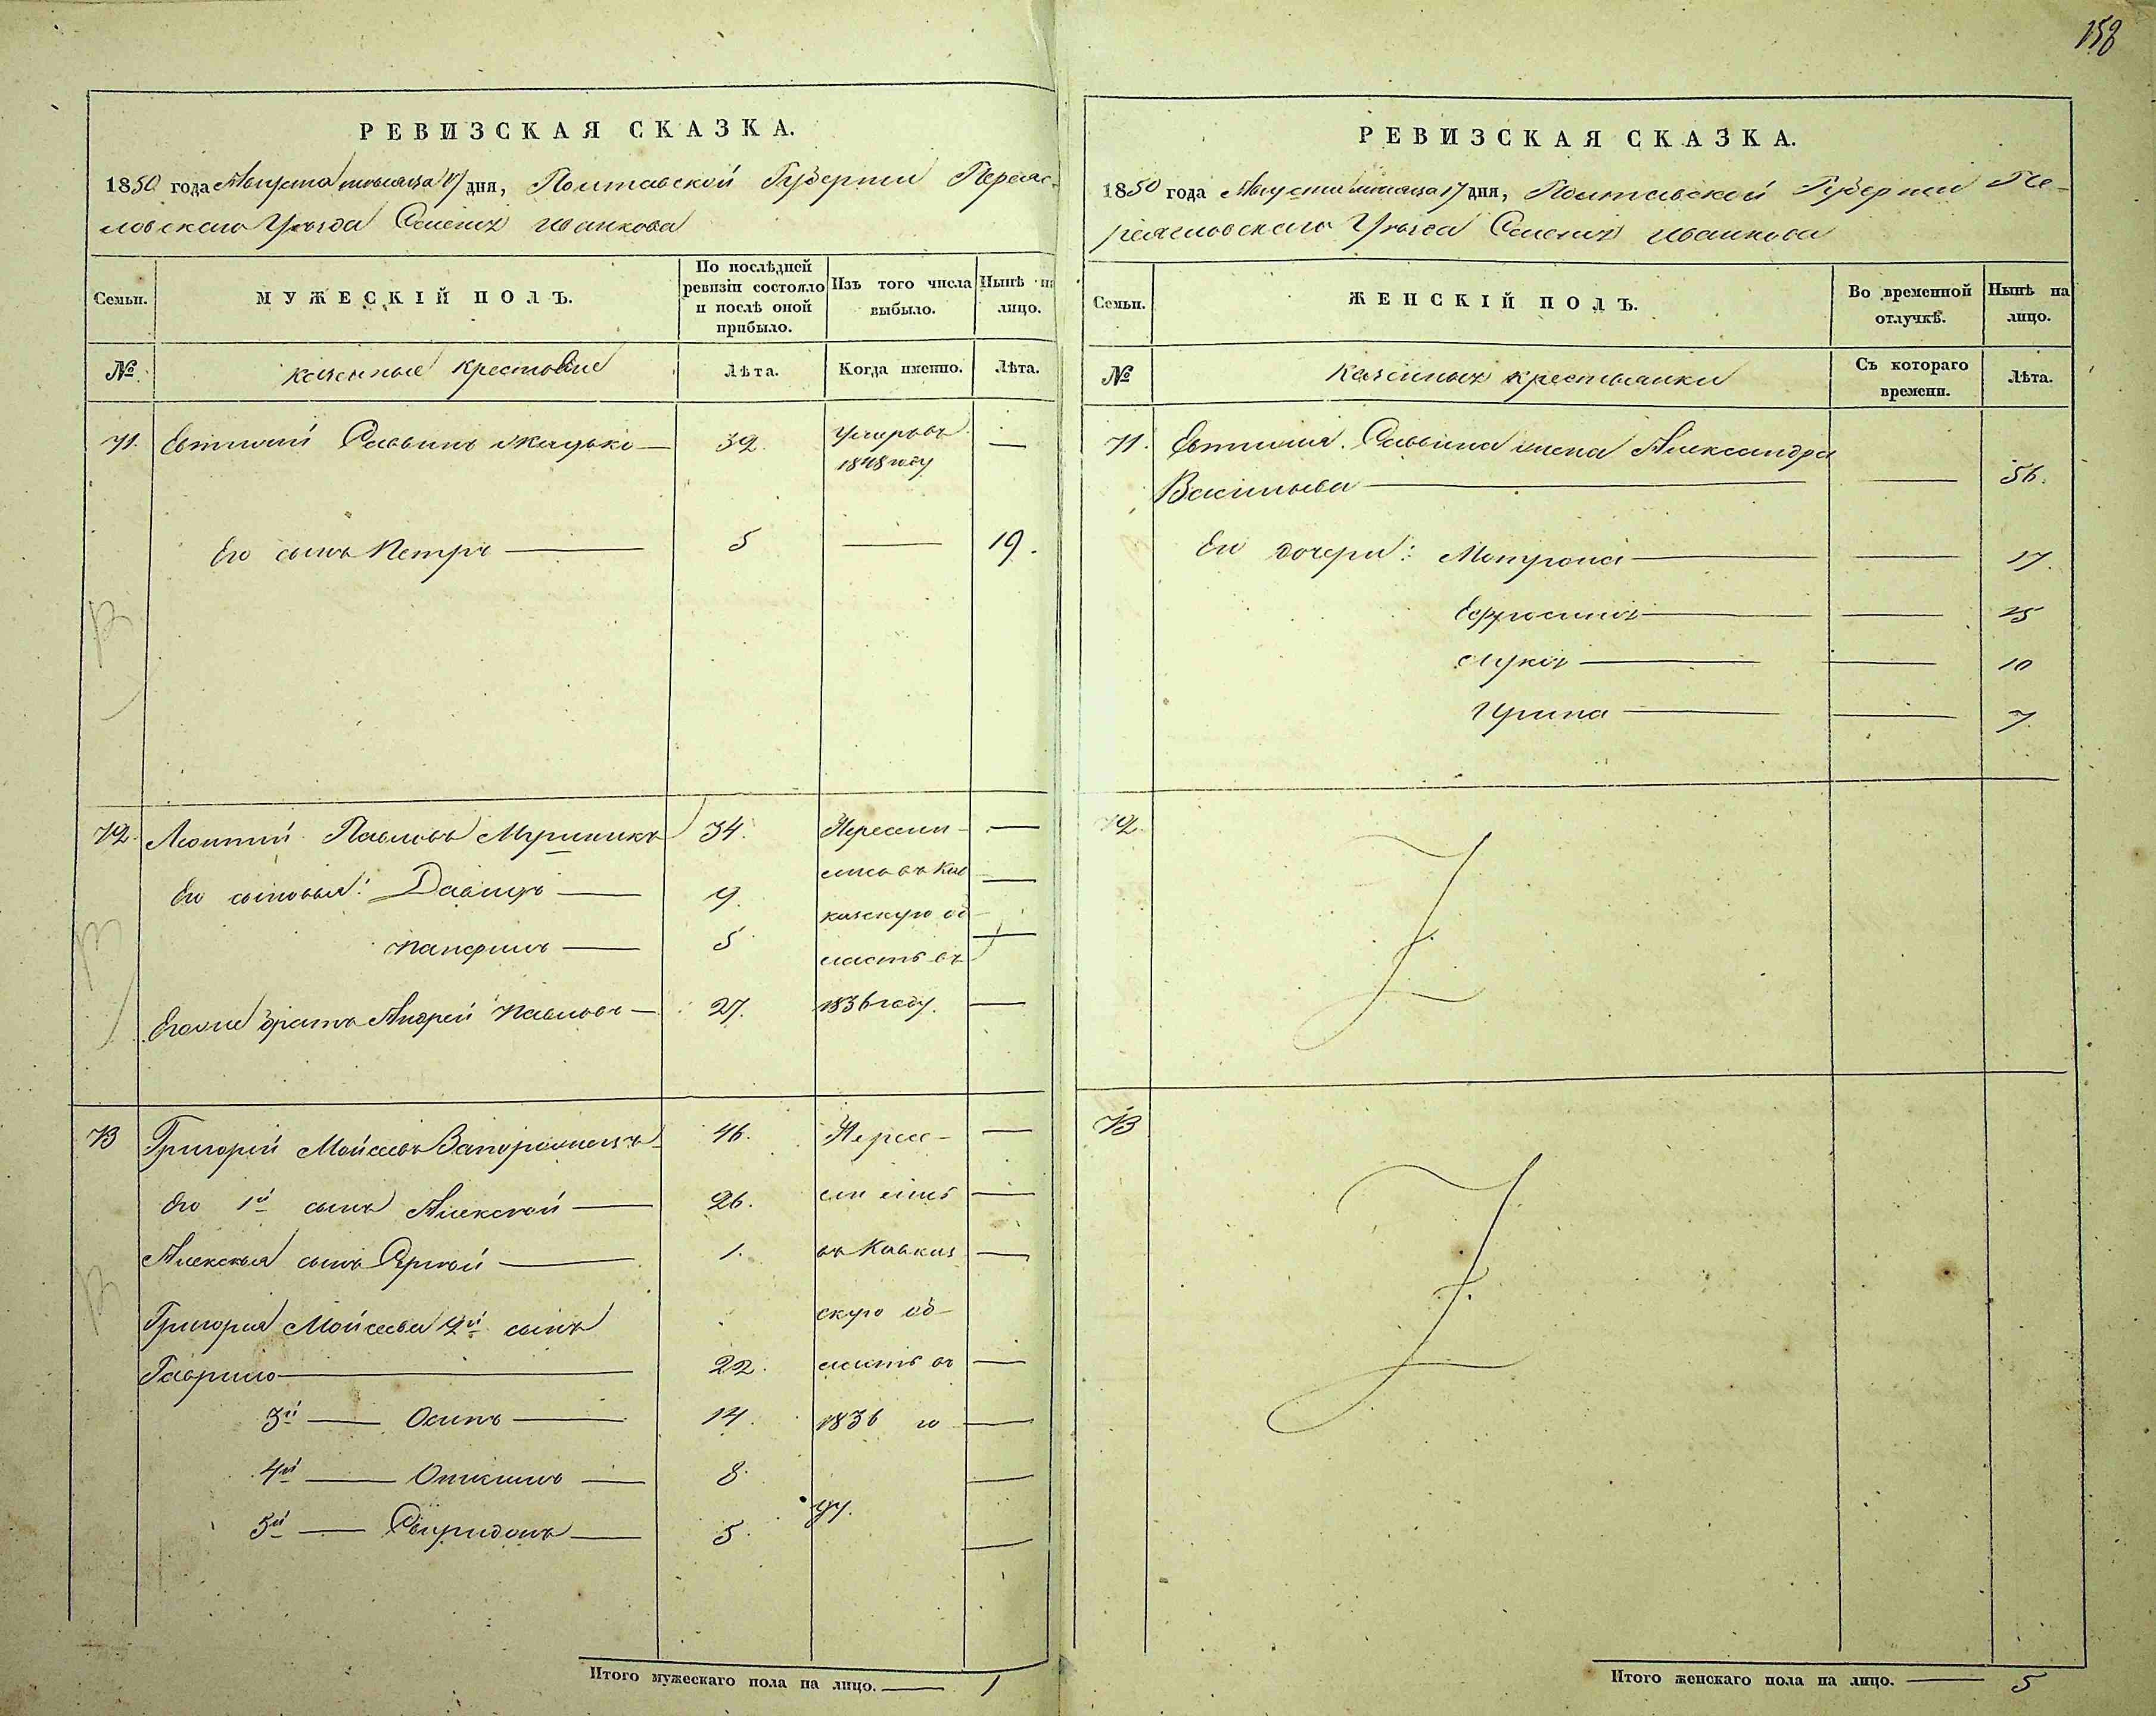 158
РЕВИЗСКАЯ СКАЗКА.
1850 года Августа месяца 17 дня, Полтавской Губернии Переяс-
ловского Уѣзда Селенія Иванкова
Семьи.
МУЖЕСКІЙ ПОЛЪ.
По послѣдней ревизіи состояло и послѣ оной прибыло.
Изъ того числа выбыло.
Нынѣ на лицо.
№
казенные крестьяне
Лѣта.
Когда именно.
Лѣта.
71. Евтихий Саввинъ 32. Умеръ въ —
1848 году
Его сынъ Петръ — 5 — 19.
72. Леонтий Павловъ 34. Пересели- —
Его сыновья: Давидъ — 9. лись въ Кав —
Панфилъ — 5 казскую об- —
ласть въ
Егоже братъ Андрей Павловъ — 27. 1836 году. —
73 Григорій Мойсеевъ Запорожецъ 46. Пересе- —
Его 1й сынъ Алексѣй — 26. лились —
Алексѣя сынъ Сергѣй — 1. въ Кавказ —
Григорія Мойсеева 2й сынъ скую об-
Гаврило — 22. ласть въ —
3й — Осипъ — 14. 1836 го —
4й — — 8. —
5й — Свиридонъ — 5. ду. —
Итого мужескаго пола на лицо. — 1
РЕВИЗСКАЯ СКАЗКА.
1850 года Августа месяца 17 дня, Полтавской Губернии Пе-
реясловского Уѣзда Селенія Иванкова
Семьи.
ЖЕНСКІЙ ПОЛЪ.
Во временной отлучкѣ.
Нынѣ на лицо.
№
Казенныхъ крестьянки
Съ котораго времени.
Лѣта.
71. Евтихия Саввина жена Александра
Васильева — — 56.
Его дочери: Мотрона — — 17.
Ефросинія — — 15
Лукія — — 10
Ирина — — 7.
72.
73
Итого женскаго пола на лицо. — 5